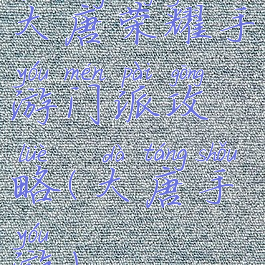 大唐荣耀手
yóu mén pài gōng
游门派攻
lüè dà táng shǒu
略(大唐手
yóu
游)